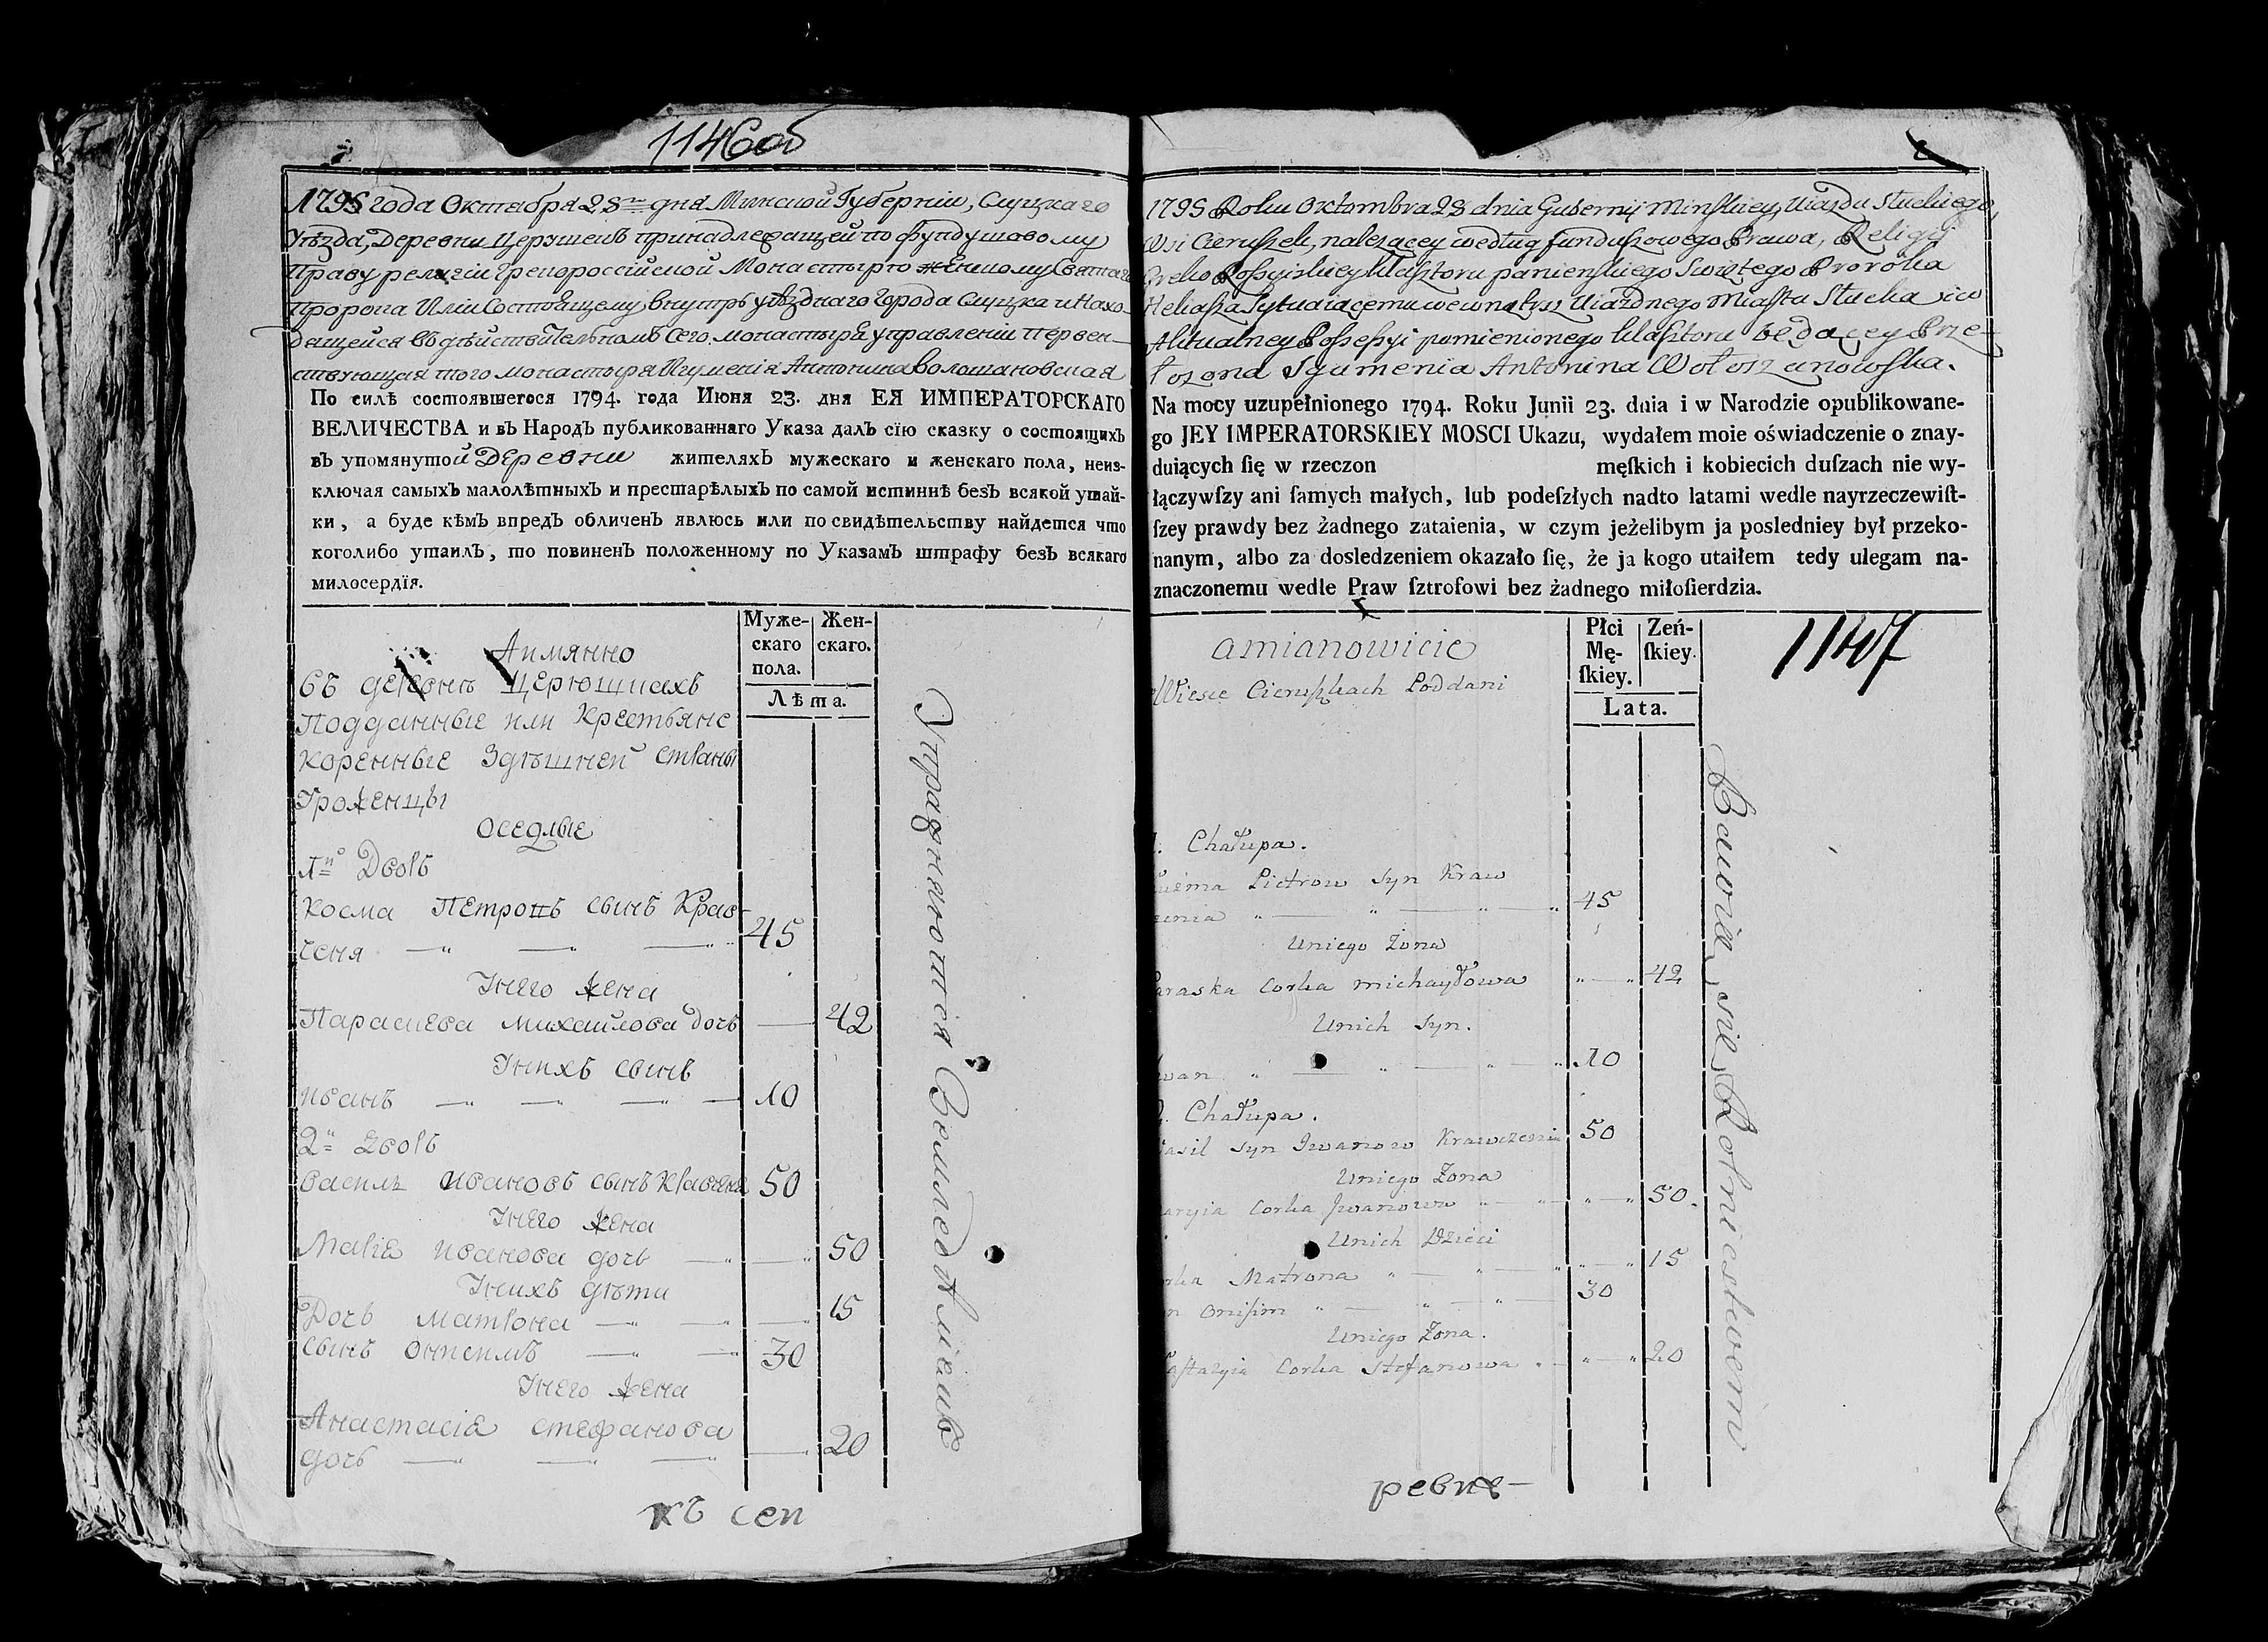 1146об
1795 года Октября 28го дня Минской Губернии, Слуцкаго
Уѣзда, Деревни Церушевъ принадлежащей по фундушовому
праву религіи Грекороссійской Монастырю женскому Святаго
пророка Иліи Состоящему внутрь уѣзднаго Города Слуцка и Нахо-
дящейся въ дѣйствительномъ Сего монастыря управленіи Первен-
ствующая того монастыря Игуменія Антонина Волошановская
По силѣ состоявшегося 1794. года Июня 23. дня ЕЯ ИМПЕРАТОРСКАГО
ВЕЛИЧЕСТВА и въ Народъ публикованнаго Указа далъ сїю сказку о состоящихъ
въ упомянутой Деревни жителяхъ мужескаго и женскаго пола, неиз-
ключая самыхъ малолѣтныхъ и престарѣлыхъ по самой истиннѣ безъ всякой утай-
ки, а буде кѣмъ впредъ обличенъ явлюсь или по свидѣтельству найдется что
коголибо утаилъ, то повиненъ положенному по Указамъ штрафу безъ всякаго
милосердїя.
Муже-
скаго
пола.
Жен-
скаго.
Лѣта.
Аимянно
Въ деревнѣ Церюшкахъ
Подданные или Крестьяне
коренные Здѣшней страны
Уроженцы
оседлые
1й Дворъ
Косма Петровъ сынъ Крав-
ченя 45
Унего жена
Параскева михайлова дочь 42
Унихъ сынъ
иванъ 10
2й Дворъ
василь ивановъ сынъ Кравченя 50
Унего жена
Марія иванова дочь 50
Унихъ дѣти
Дочь матрона 15
сынъ онисимъ 30
Унего жена
Анастасія стефанова
дочь 20
Упражняются Земледѣліемъ
къ сей
1795 Roku Oktombra 28 dnia Gubernij Minskiey, Uiazdu Słuckiego,
Wsi Cieruszek, nalezącey według funduszowego Prawa, Religij
Greko Rossyiskiey klasztoru panienskiego Swiętego Proroka
Heliasza Sytuaiącemu wewnątrz Uiazdnego Miasta Słucka i w
Aktualney Possessyi pomienionego klasztoru będącey Prze-
łozona Jgumenia Antonina Wołoszanowska.
Na mocy uzupełnionego 1794. Roku Junii 23. dnia i w Narodzie opublikowane-
go JEY IMPERATORSKIEY MOSCI Ukazu, wydałem moie oświadczenie o znay-
duiących ſię w rzeczon męſkich i kobiecich duſzach nie wy-
łączywſzy ani ſamych małych, lub podeſzłych nadto latami wedle nayrzeczewiſt-
ſzey prawdy bez żadnego zataienia, w czym jeżelibym ja posledniey był przeko-
nanym, albo za dosledzeniem okazało ſię, że ja kogo utaiłem tedy ulegam na-
znaczonemu wedle Praw ſztrofowi bez żadnego miłoſierdzia.
Płci
Mę-
ſkiey.
Zeń-
ſkiey.
Lata.
1147
amianowicie
Wiesce Cieruszkach Poddani
1. Chałupa.
Kuźma Piotrow syn Kraw
czenia 45
Uniego Żona
Paraska Corka michayłowa 42
Unich syn.
Iwan 10
2. Chałupa.
Wasil syn Iwanow Krawczenia 50
Uniego Żona
Maryia Corka Jwanowa 50
Unich Dzieci
Corka Matrona 15
Syn Onisim 30
Uniego Żona.
Nastazyia Corka Stefanowa 20
Bawią się Rolnictwem
ревиз-